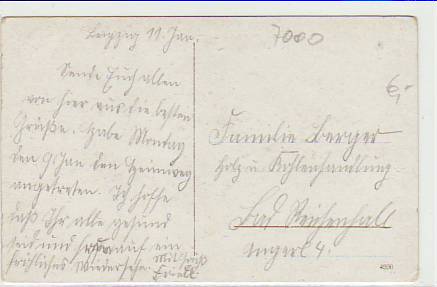 Leipzig 11. Jan.
Sende Euch allen
von hier aus die besten
Grüße. Habe Montag
den 9. Jan den Heimweg
angetreten. Ich hoffe
daß Ihr alle gesund
seid und auf ein
fröhliches Wiedersehn. Mit Gruß
7000
6,-
Familie Berger
Holz u Kohlenhandlung
Bad Reichenhall
Angerl 4.